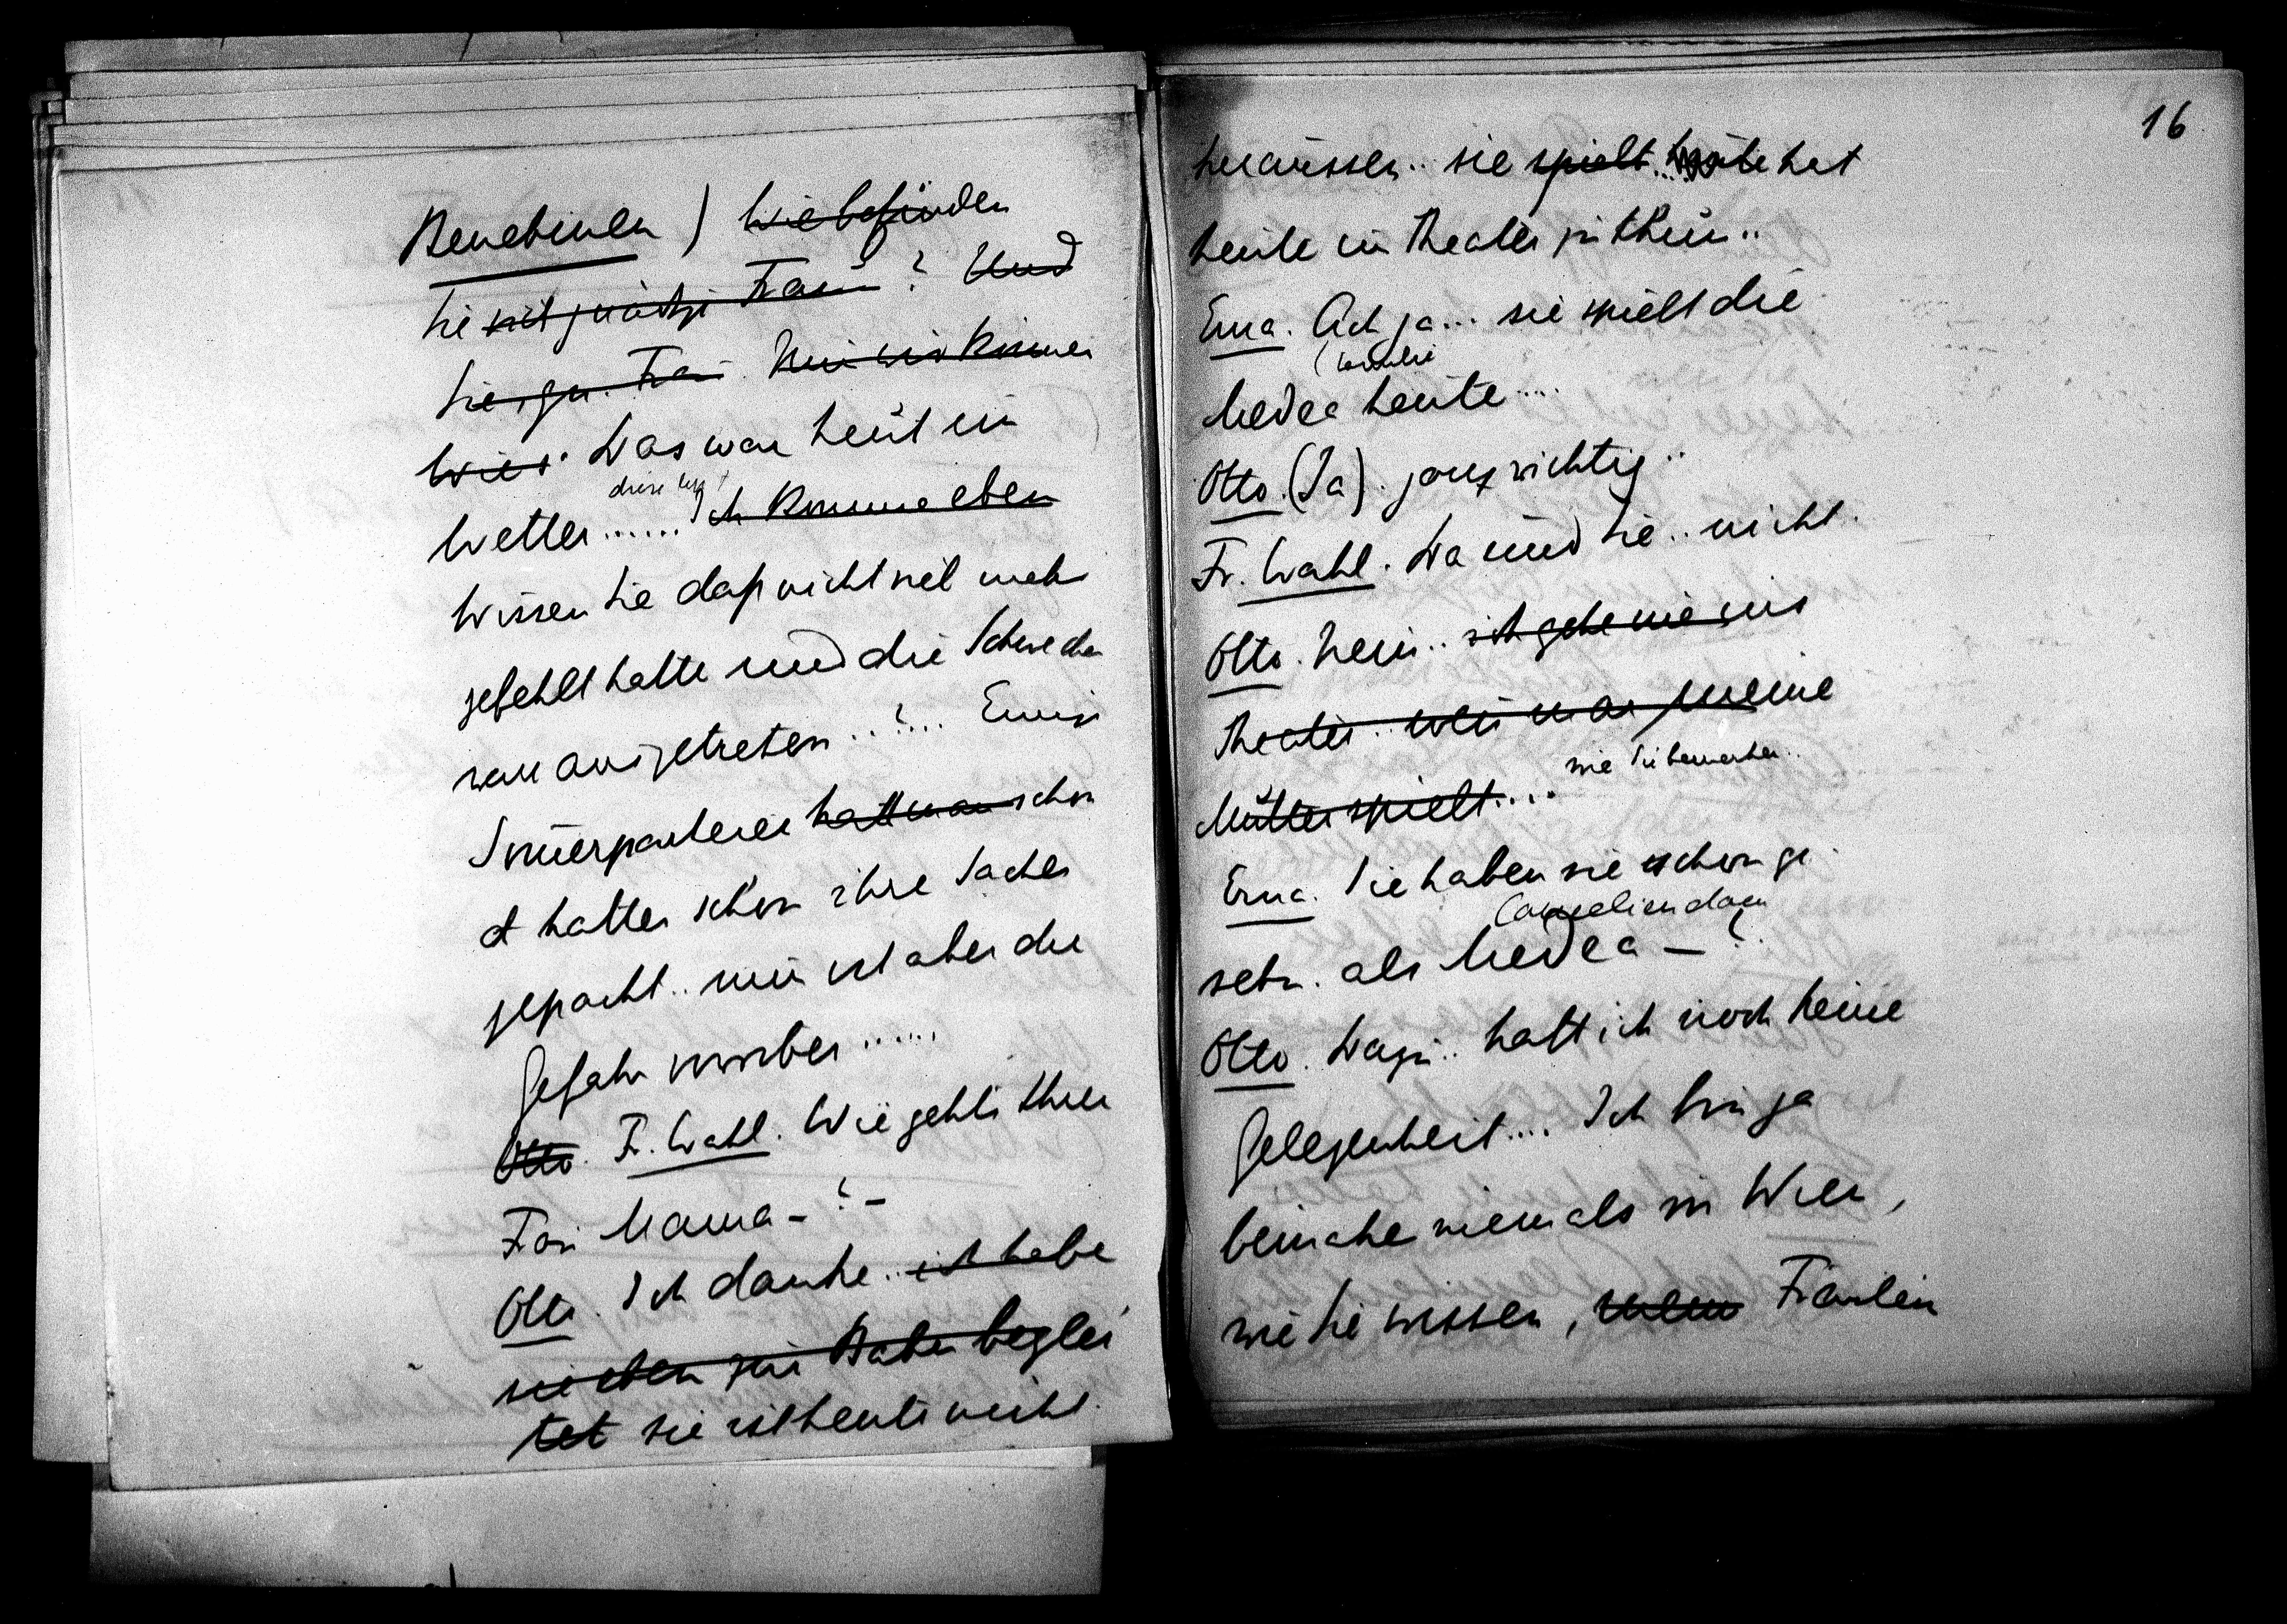 Benehmen) Wie befinden
Sie sich gnädge Frau? Und
Sie, gn. Frau. Nun wir kommen
wies. Das war heut ein
diese lezt
Wetter...... Ich komme eben
Wissen Sie daß nicht viel mehr
gefehlt hatte und die Schwechat
war ausgetreten..?... Einige
Sommerparteien hatt man schon
hatten schon ihre Sachen
gepackt.. nun ist aber die
Gefahr vorüber......
Otto. Fr. Wahl. Wie gehts Ihrer
Frau Mama – ? –
Otto. Ich danke.. ich habe
sie eben zur Bahn beglei
tet sie ist heute nicht
16
heraussen.. sie spielt... hat
heute im Theater zu thun..
Erna. Ach ja... sie spielt die
Medea heute....
Otto. (Ja). ganz richtig..
Fr. Wahl. Da sind Sie.. nicht.
Otto. Nein.. ich gehe nie ins
Theater.. wenn man meine
wie Sie bemerken..
Mutter spielt....
Erna. Sie haben sie schon ge
Cameliendam
sehn. als Medea – ?
Otto. Dazu.. hatt ich noch keine
Gelegenheit.... Ich bin ja
beinahe niemals in Wien,
wie Sie wissen, Fräulein